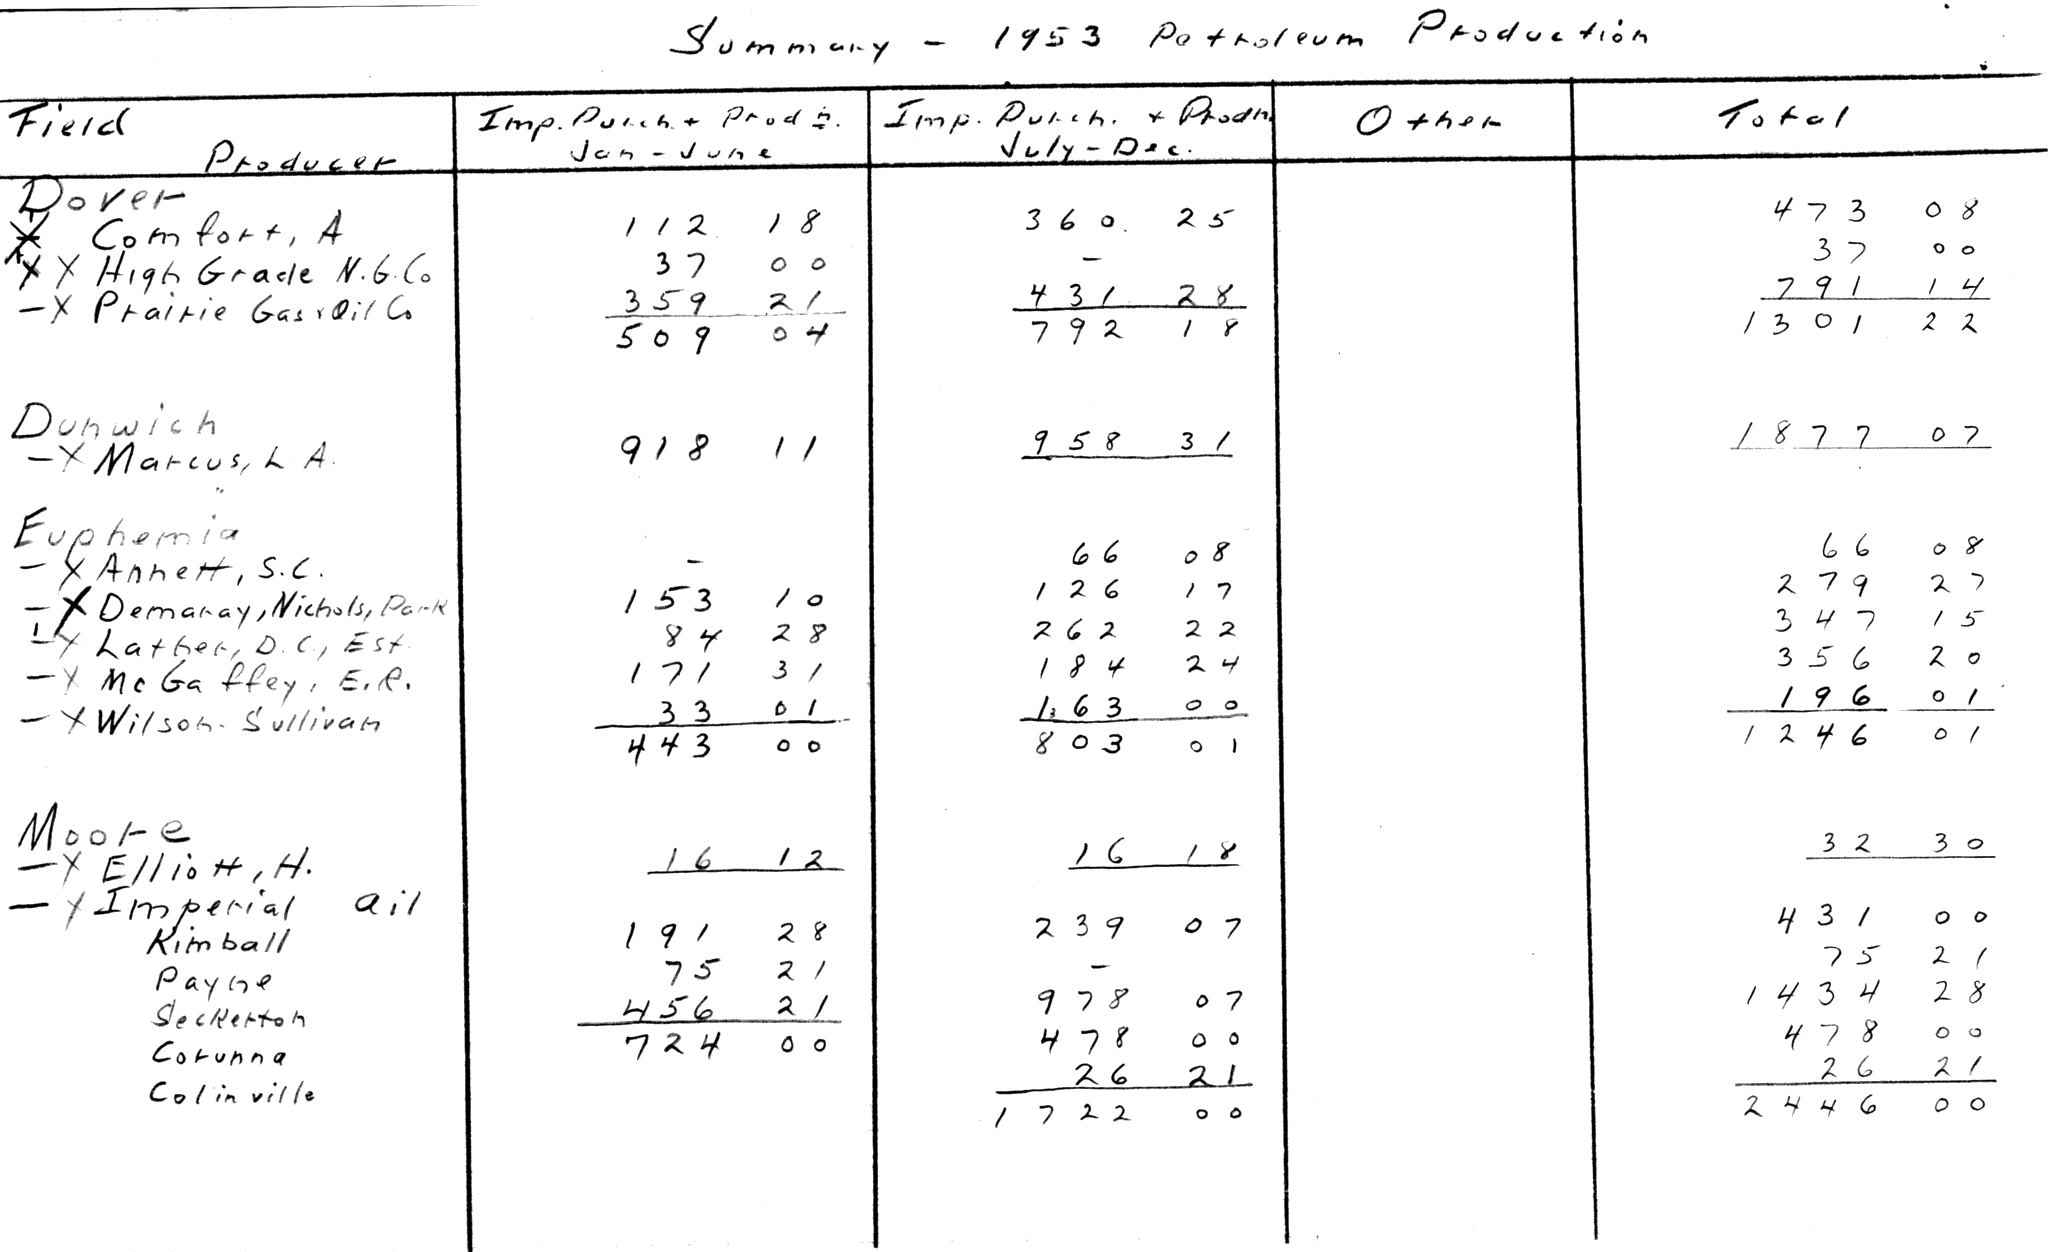 Summary - 1953 Petroleum Production
Field Producer Imp. Purch. + Prod'n. Jan - June Imp. Purch. + Prodn. July - Dec. Other Total
Dover
X Comfort, A 112 18 360. 25 473 08
X X High Grade N.G. Co 37 00 - 37 00
- X Prairie Gas & Oil Co 359 21 431 28 791 14
509 04 792 18 1301 22
Dunwich
- X Marcus, L A. 918 11 958 31 1877 07
Euphemia
- X Annett, S.C. - 66 08 66 08
- X Demaray, Nichols, Park 153 10 126 17 279 27
- X Lather, D.C., Est. 84 28 262 22 347 15
- X McGaffey, E.R. 171 31 184 24 356 20
- X Wilson - Sullivan 33 01 163 00 196 01
443 00 803 01 1246 01
Moore
- X Elliott, H. 16 12 16 18 32 30
- X Imperial Oil
Kimball 191 28 239 07 431 00
Payne 75 21 - 75 21
Seckerton 456 21 978 07 1434 28
Corunna 724 00 478 00 478 00
Colinville 26 21 26 21
1722 00 2446 00